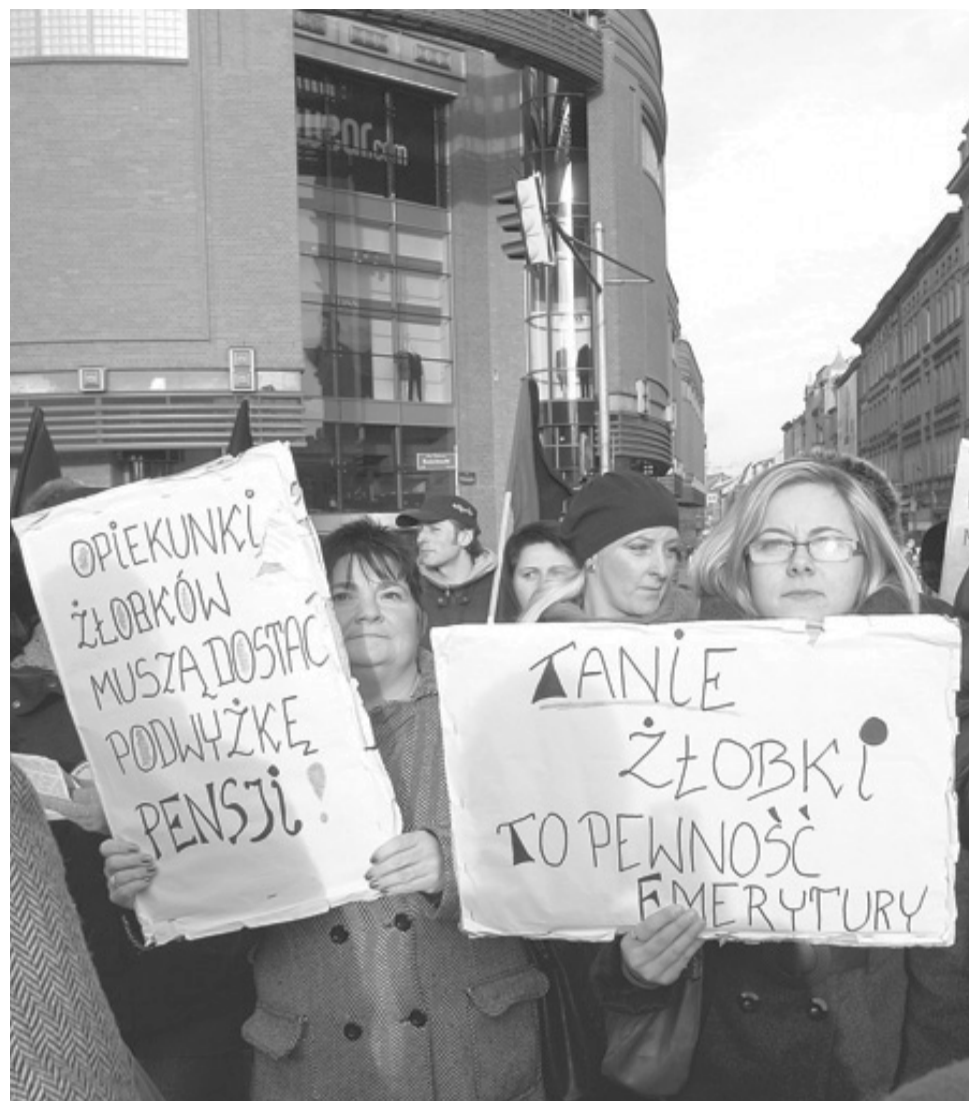 OPiEKUNKi
ŻŁOBKÓW
MUSZĄ DOSTAĆ
PODWYŻKĘ
PENSJi!
TANiE
ŻŁOBKi
TO PEWNOŚĆ
EMERYTURY
.com